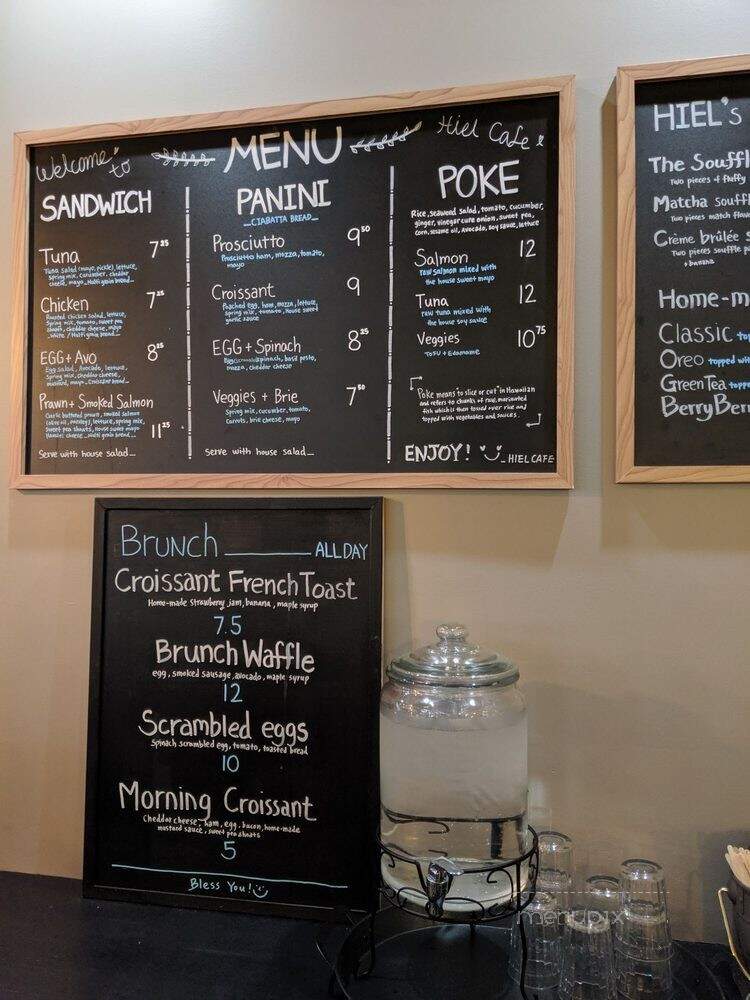 Welcome to
MENU
Hiel Cafe
SANDWICH
Tuna 7.25
Tuna salad (mayo, pickle), lettuce,
spring mix, cucumber, cheddar
cheese, mayo_ Multi grain bread_
Chicken 7.25
Roasted chicken salad, lettuce,
Spring mix, tomato, sweet pea
shoots, cheddar cheese, mayo
_White / Multi grain bread_
EGG + Avo 8.25
Egg salad, Avocado, lettuce,
spring mix, cheddar cheese,
mustard, mayo_ Croissant bread_
Prawn + Smoked Salmon 11.25
Garlic buttered prawn, smoked salmon
lettuce, spring mix,
Sweet pea shoots, House sweet mayo
cheese_ Multi grain bread_
Serve with house salad_
PANINI
_CIABATTA BREAD_
Prosciutto 9.50
Prosciutto ham, mozza, tomato,
mayo
Croissant 9
Poached egg, ham, mozza, lettuce,
Spring mix, tomato, House sweet
garlic sauce
EGG + Spinach 8.25
Egg spinach, basil pesto,
mozza, cheddar cheese
Veggies + Brie 7.50
Spring mix, cucumber, tomato,
Carrots, brie cheese, mayo
Serve with house salad_
POKE
Rice, seaweed salad, tomato, cucumber,
ginger, vinegar cure onion, sweet pea,
corn, sesame oil, Avocado, soy sauce, lettuce
Salmon 12
raw salmon mixed with
the house sweet mayo
Tuna 12
raw tuna mixed with
the house soy sauce
Veggies 10.75
Tofu + Edamame
Poke means "to slice or cut" in Hawaiian
and refers to chunks of raw, marinated
fish which is then tossed over rice and
topped with vegetables and sauces.
ENJOY! _HIEL CAFE
HIEL's
The Souffl
Two pieces of fluffy
Matcha souffl
Two pieces match
Crème brûlée s
Two pieces souffle
+ banana
Home-m
Classic top
Oreo topped wit
Green Tea topp
BerryBer
Brunch ALL DAY
Croissant French Toast
Home-made strawberry jam, banana, maple syrup
7.5
Brunch Waffle
egg, smoked sausage, avocado, maple syrup
12
Scrambled eggs
Spinach scrambled egg, tomato, toasted bread
10
Morning Croissant
Cheddar cheese, ham, egg, bacon, home-made
mustard sauce, sweet pea shoots
5
Bless You!
menupix